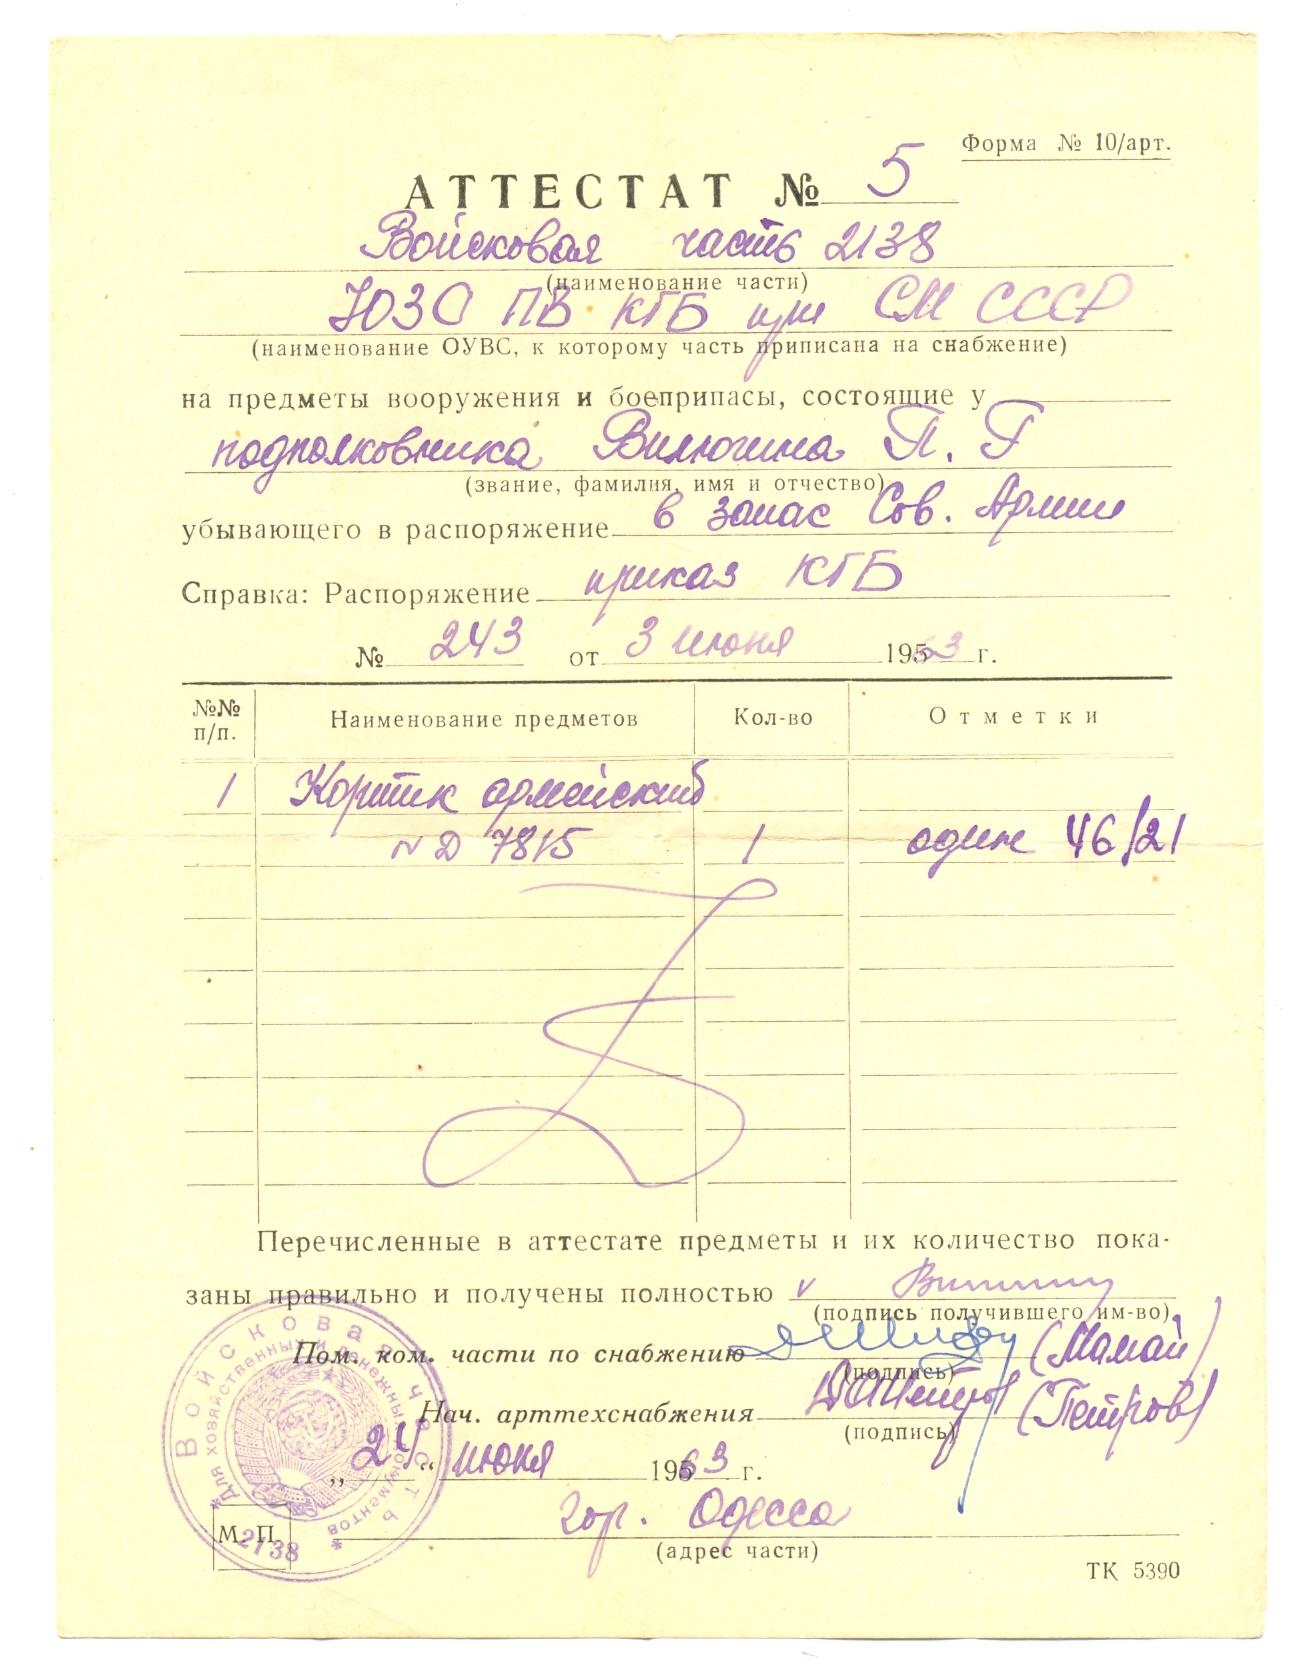 Форма № 10/арт.
АТТЕСТАТ № 5
Войсковая часть 2138
(наименование части)
ЮЗО ПВ КГБ при СМ СССР
(наименование ОУВС, к которому часть приписана на снабжение)
на предметы вооружения и боеприпасы, состоящие у
подполковника Вилючина П. Г
(звание, фамилия, имя и отчество)
убывающего в распоряжение в запас Сов. Армии
Справка: Распоряжение приказ КГБ
№ 243 от 3 июня 1963 г.
№№ п/п. Наименование предметов Кол-во Отметки
1 Кортик армейский
№ Д 7815 1 один 46/21
Перечисленные в аттестате предметы и их количество пока-
заны правильно и получены полностью
(подпись получившего им-во)
Пом. ком. части по снабжению (Мамай)
(подпись)
Нач. арттехснабжения (Петров)
(подпись)
„24“ июня 1963 г.
гор. Одесса
М. П.
(адрес части)
ТК 5390
Войсковая часть
* Для хозяйственных и денежных документов *
2138